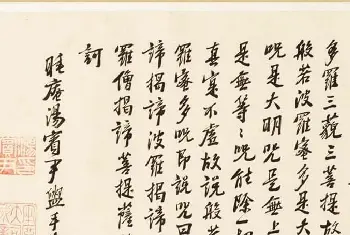 多羅三藐三菩提故
般若波羅蜜多是大
咒是大明咒是無上
是無等〻咒能除一
真實不虛故說般若
羅蜜多咒即說咒曰
諦揭諦波羅揭諦
羅僧揭諦菩提薩
訶
睡庵湯賓尹盥手